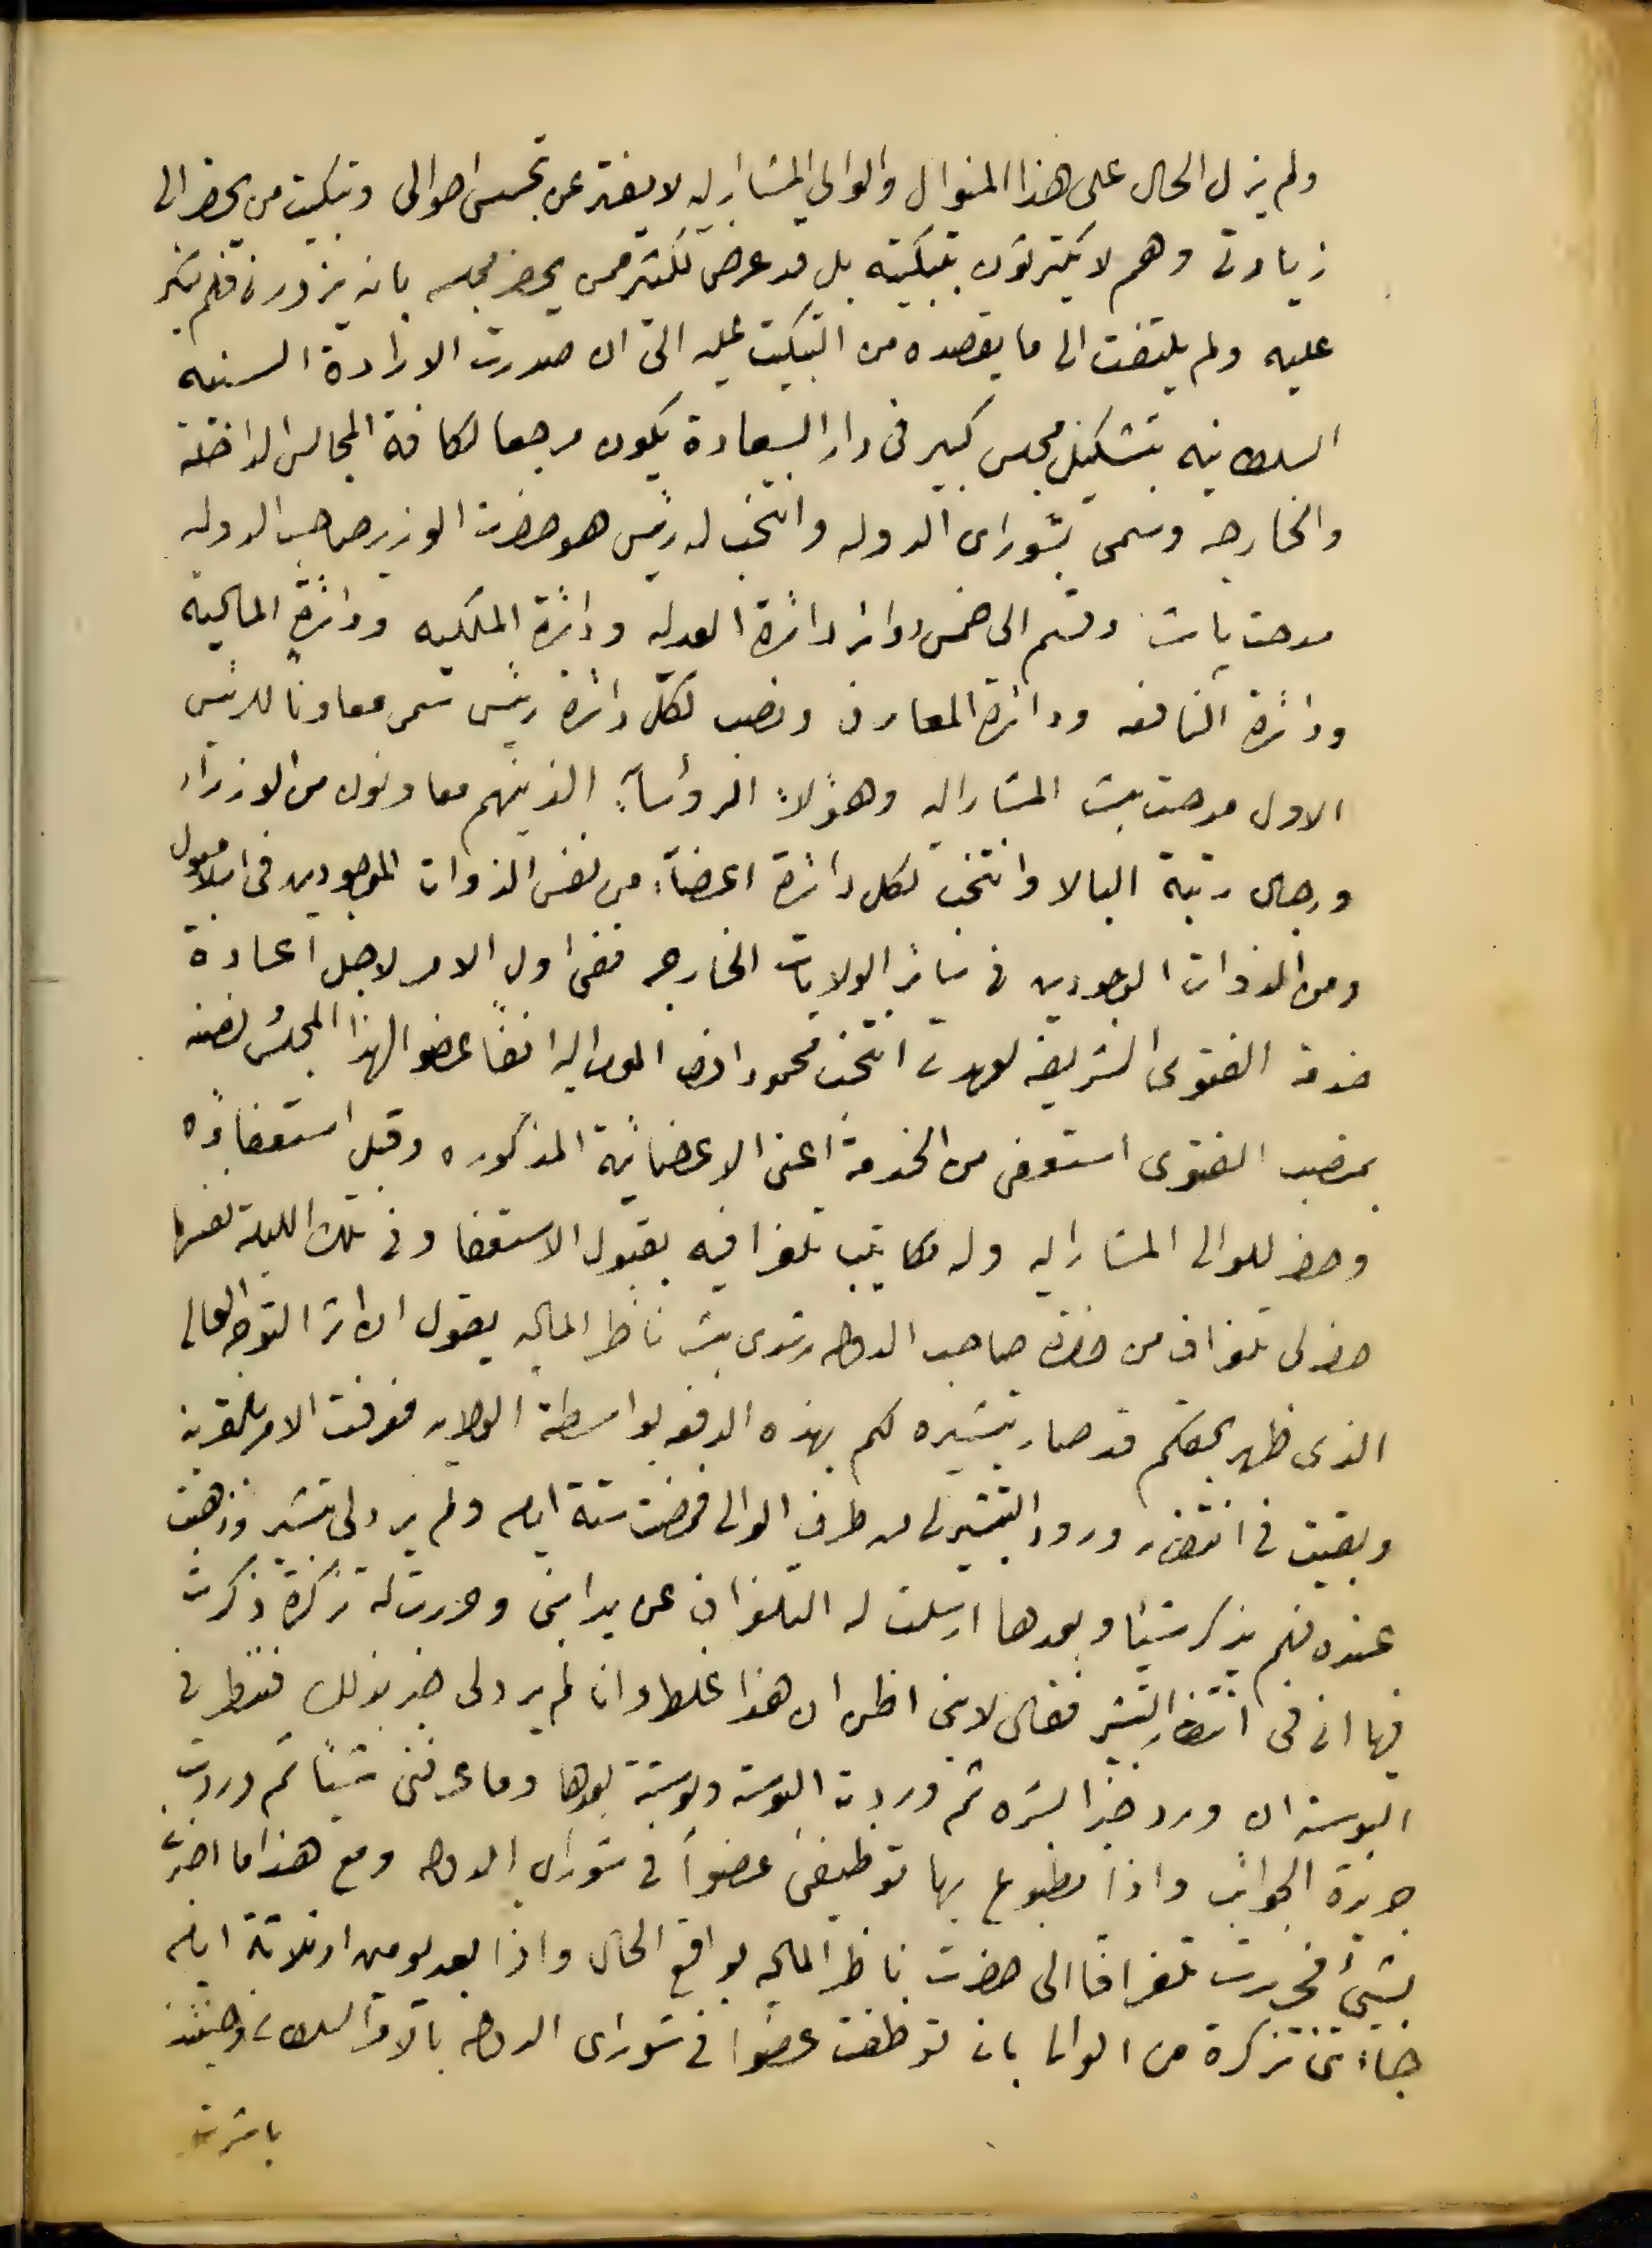 ولم يزل الحال على هذا المنوال والوالي المشار اليه لا يفتر عن تجسس احوالى وتبكيت من يحضر الى
زيارتى وهم لا يكترثون بتبكيته بل قد عرض لكثير ممن يحضر مجلسه بانه يزورنى فلم ينكر
عليه ولم يلتفت الى ما يقصده من التبكيت عليه الى ان صدرت الارادة السنيه
السلطانيه بتشكيل مجلس كبير فى دار السعادة يكون مرجعا لكافة المجالس الداخلة
والخارجه وسمى بشوراى الدوله وانتخب له رئيس هو حضرت الوزير صاحب الدوله
مدحت باشا وقسم الى خمس دوائر دائرة العدليه ودائرة الملكيه ودائرة الماليه
ودائرة النافعه ودائرة المعارف ونصب لكل دائرة رئيس سمى معاونًا للرئيس
الاول مدحت باشا المشار اليه وهؤلاء الرؤسآء الذينهم معاونون من الوزرآء
ورجال رتبة البالا وانتخب لكل دائرة اعضآء من نفس الذوات الموجودين فى اسلامبول
ومن الذوات الموجودين فى سائر الولايات الخارجه ففى اول الامر لاجل اعادة
خدمة الفتوى الشريفه لعهدتى انتخب محمود افندى الموما اليه انفًا عضوا لهذا المجلس لضنه
بمنصب الفتوى استعفى من الخدمة اعنى الاعضائية المذكوره وقبل استعفاؤه
وحضر للوالى المشار اليه وله مكاتيب تلغرافيه بقبول الاستعفا وفى تلك الليلة نفسها
حضر لى تلغراف من حضرة صاحب الدوله رشدى باشا ناظر الماليه يقول ان اثر التوجه العالى
الذى ظهر بحقكم قد صار تبشيره لكم بهذه الدفعه بواسطة الولايه فعرفت الامر بالقرينه
وبقيت فى انتظار ورود التبشير لى من طرف الوالى فمضت ستة ايام ولم يرد لى تبشير وذهبت
عنده فلم يذكر شيئا وبعدها ارسلت له التلغراف عن يد ابنى وحررت له تذكرة ذكرت
فيها انى فى انتظار التبشير فقال لابنى اظن ان هذا غلط وانا لم يرد لى خبر بذلك فننظر فى
البوسته ان ورد خبر ابشره ثم وردت البوسته وبوستة بعدها وما عرفنى شيئا ثم وردت
جريدة الجوائب واذا مطبوع بها توظيفى عضواً فى شوراى الدوله ومع هذا ما اخبرت
بشيئ فحررت تلغرافا الى حضرت ناظر الماليه بواقع الحال واذا بعد يومين او ثلاثة ايام
جاءتنى تذكرة من الوالى بان توظفت عضوا فى شوراى الدوله بالامر السلطانى وحينئذ
باشرت